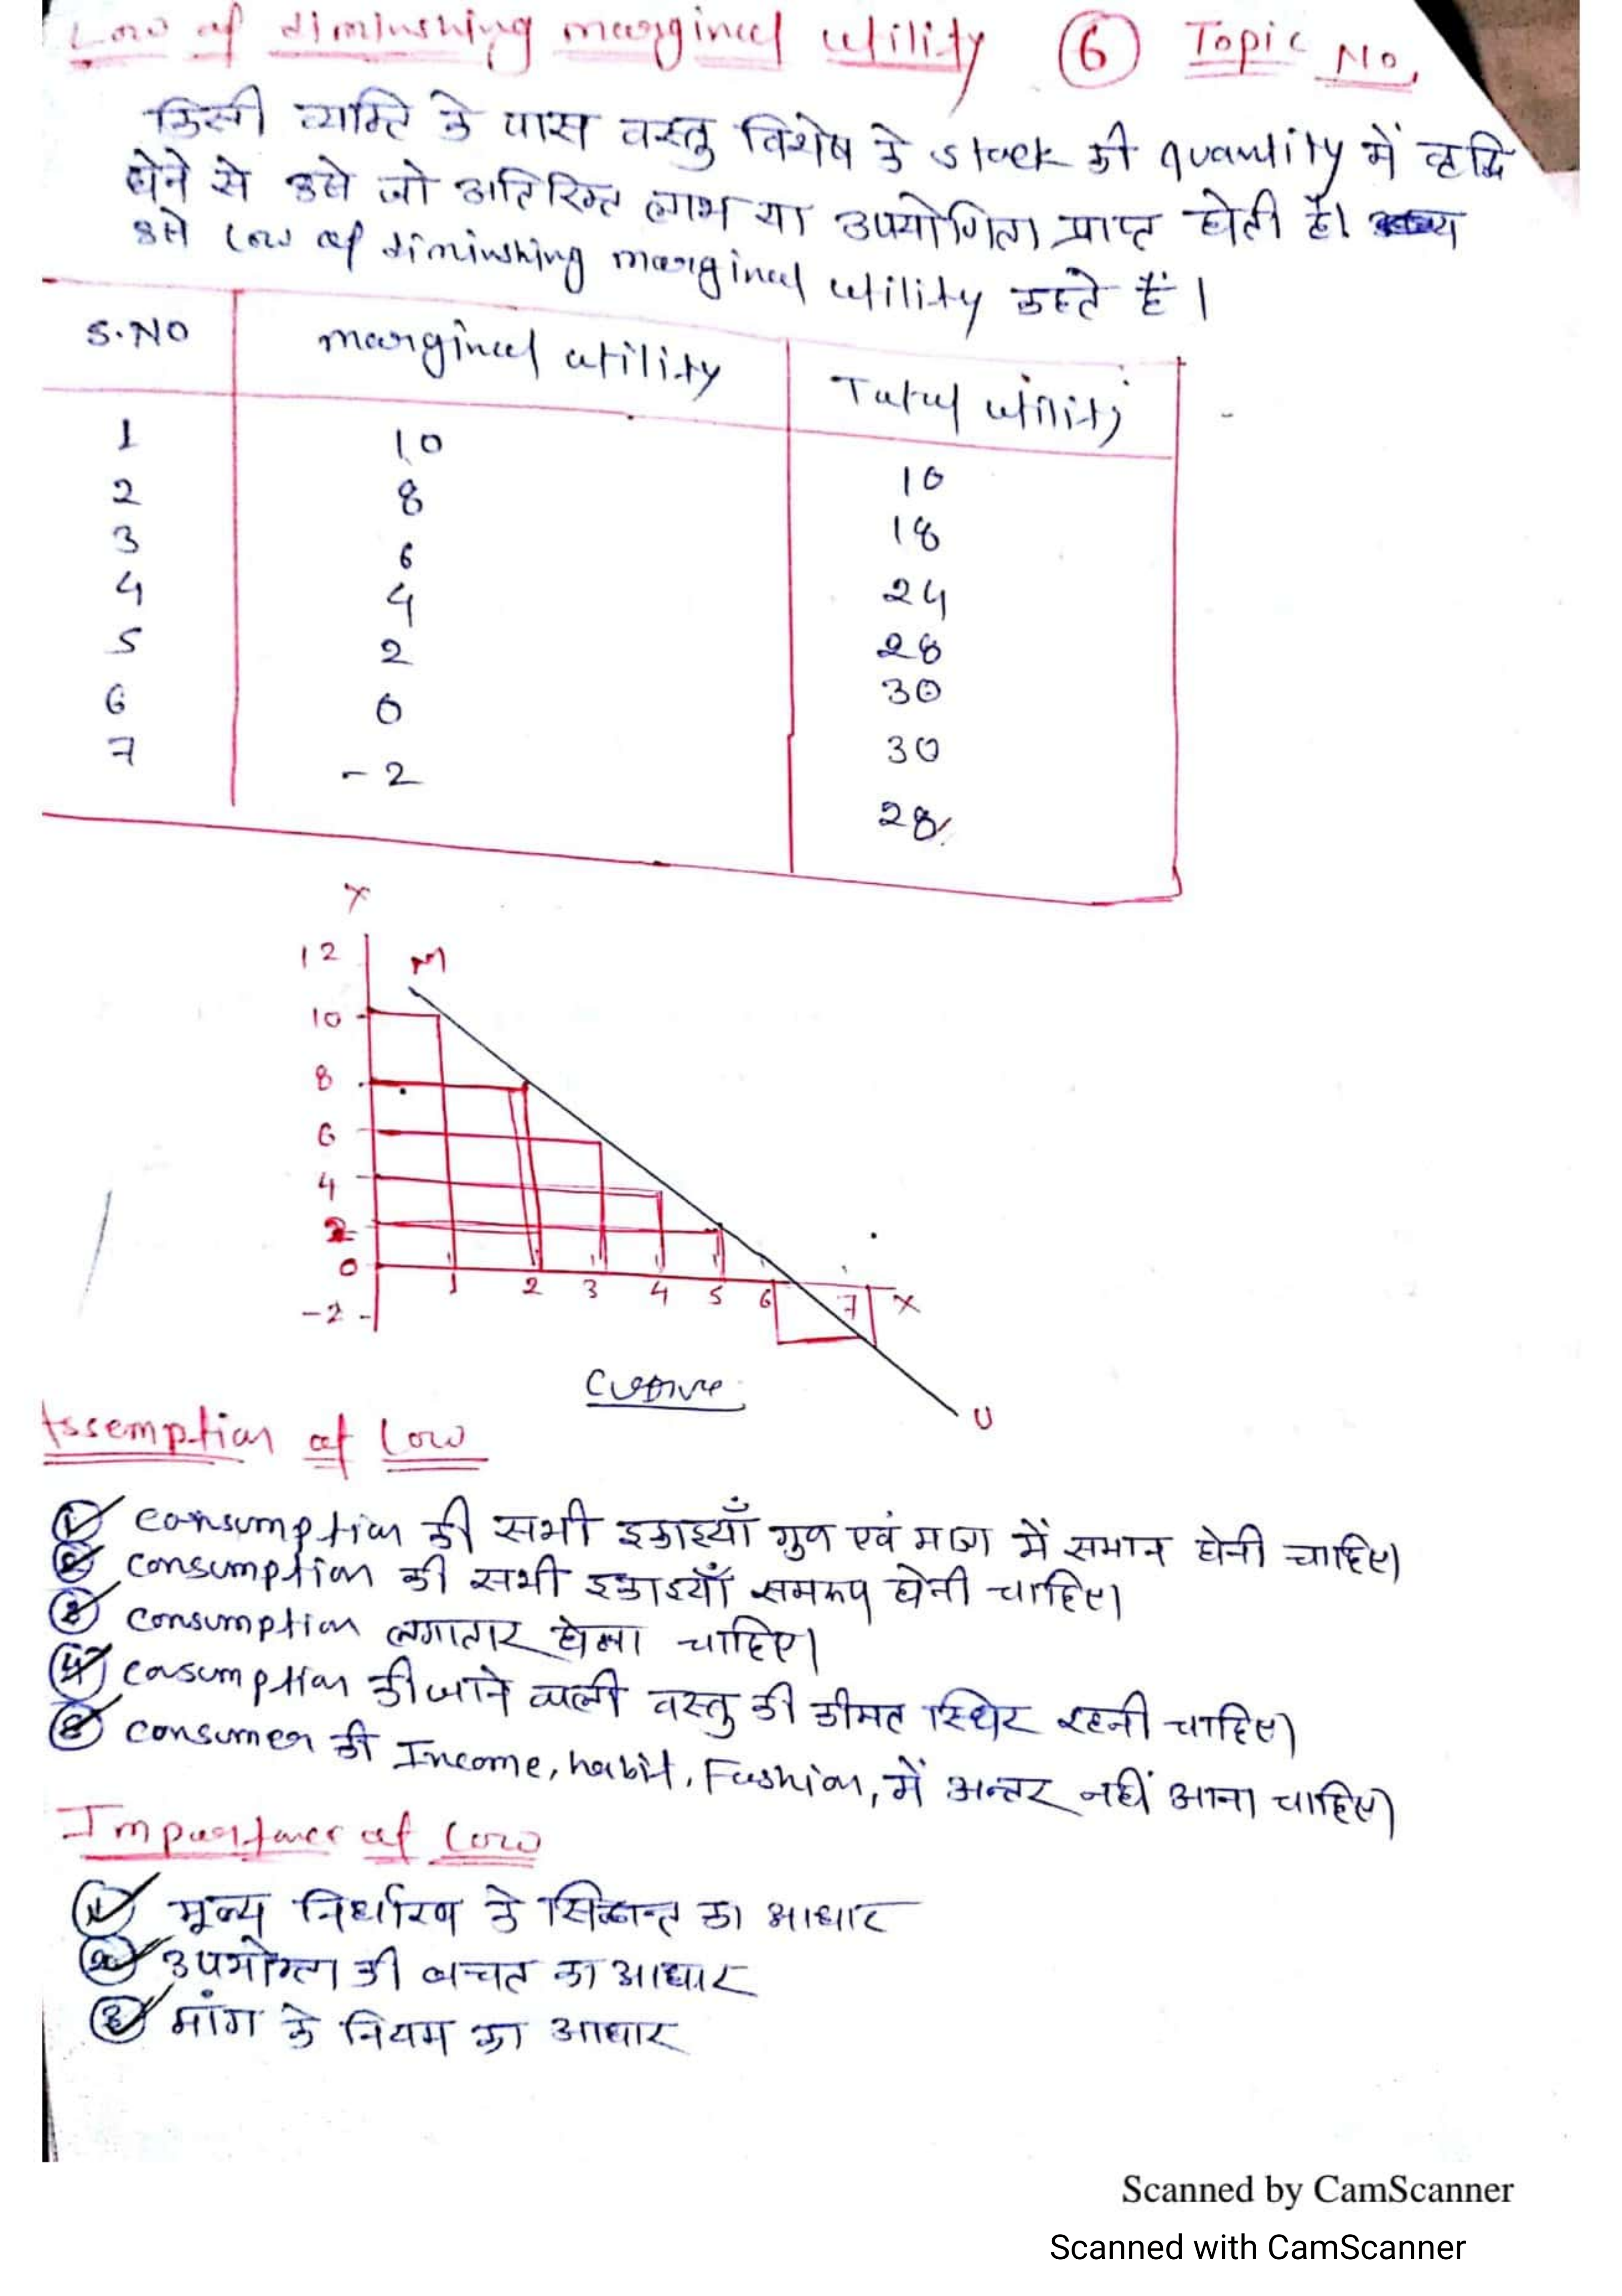 Law of diminshing marginal utility 6 Topic No.
किसी व्यक्ति के पास वस्तु विशेष के stock की quantity में वृद्धि
होने से उसे जो अतिरिक्त लाभ या उपयोगिता प्राप्त होती है।
उसे Law of diminshing marginal utility कहते हैं।
S.NO marginal utility Total utility
1 10 10
2 8 18
3 6 24
4 4 28
5 2 30
6 0 30
7 -2 28
Y
12 M
10
8
6
4
2
0 1 2 3 4 5 6 7 X
-2
Curve
U
Assemption of Law
1 consumption की सभी इकाइयाँ गुण एवं मात्रा में समान होनी चाहिए।
2 consumption की सभी इकाइयाँ समरूप होनी चाहिए।
3 consumption लगातार होना चाहिए।
4 cosumption की जाने वाली वस्तु की कीमत स्थिर रहनी चाहिए।
5 consumer की Income, habit, Fashion, में अन्तर नहीं आना चाहिए।
Importance of Law
1 मूल्य निर्धारण के सिद्धान्त का आधार
2 उपभोक्ता की बचत का आधार
3 मांग के नियम का आधार
Scanned by CamScanner
Scanned with CamScanner